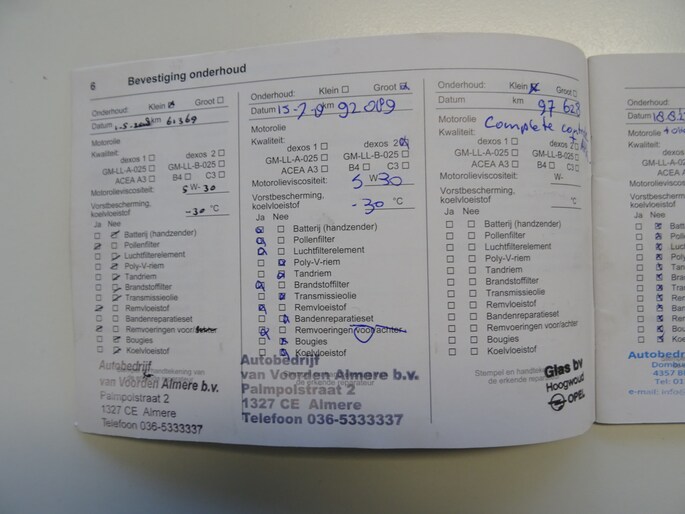 6 Bevestiging onderhoud
Onderhoud: Klein Groot
Datum km 61369
Motorolie
Kwaliteit:
dexos 1 dexos 2
GM-LL-A-025 GM-LL-B-025
ACEA A3 B4 C3
Motorolieviscositeit: 5 W-30
Vorstbescherming,
koelvloeistof -30 °C
Ja Nee
Batterij (handzender)
Pollenfilter
Luchtfilterelement
Poly-V-riem
Tandriem
Brandstoffilter
Transmissieolie
Remvloeistof
Bandenreparatieset
Remvoeringen voor/
Bougies
Koelvloeistof
Autobedrijf
van Voorden Almere b.v.
Palmpolstraat 2
1327 CE Almere
Telefoon 036-5333337
Onderhoud: Klein Groot
Datum km 92089
Motorolie
Kwaliteit:
dexos 1 dexos 2
GM-LL-A-025 GM-LL-B-025
ACEA A3 B4 C3
Motorolieviscositeit: 5 W-30
Vorstbescherming,
koelvloeistof -30 °C
Ja Nee
Batterij (handzender)
Pollenfilter
Luchtfilterelement
Poly-V-riem
Tandriem
Brandstoffilter
Transmissieolie
Remvloeistof
Bandenreparatieset
Remvoeringen voor/achter
Bougies
Koelvloeistof
Autobedrijf
van Voorden Almere b.v.
de erkende reparateur
Palmpolstraat 2
1327 CE Almere
Telefoon 036-5333337
Onderhoud: Klein Groot
Datum km 97628
Motorolie Complete
Kwaliteit:
dexos 1
GM-LL-A-025 GM-LL-B-025
ACEA A3 B4 C3
Motorolieviscositeit: W-
Vorstbescherming,
koelvloeistof °C
Ja Nee
Batterij (handzender)
Pollenfilter
Luchtfilterelement
Poly-V-riem
Tandriem
Brandstoffilter
Transmissieolie
Remvloeistof
Bandenreparatieset
Remvoeringen voor/achter
Bougies
Koelvloeistof
Stempel en handtekening van
de erkende
Glas bv
Hoogwoud
OPEL
Ja Nee